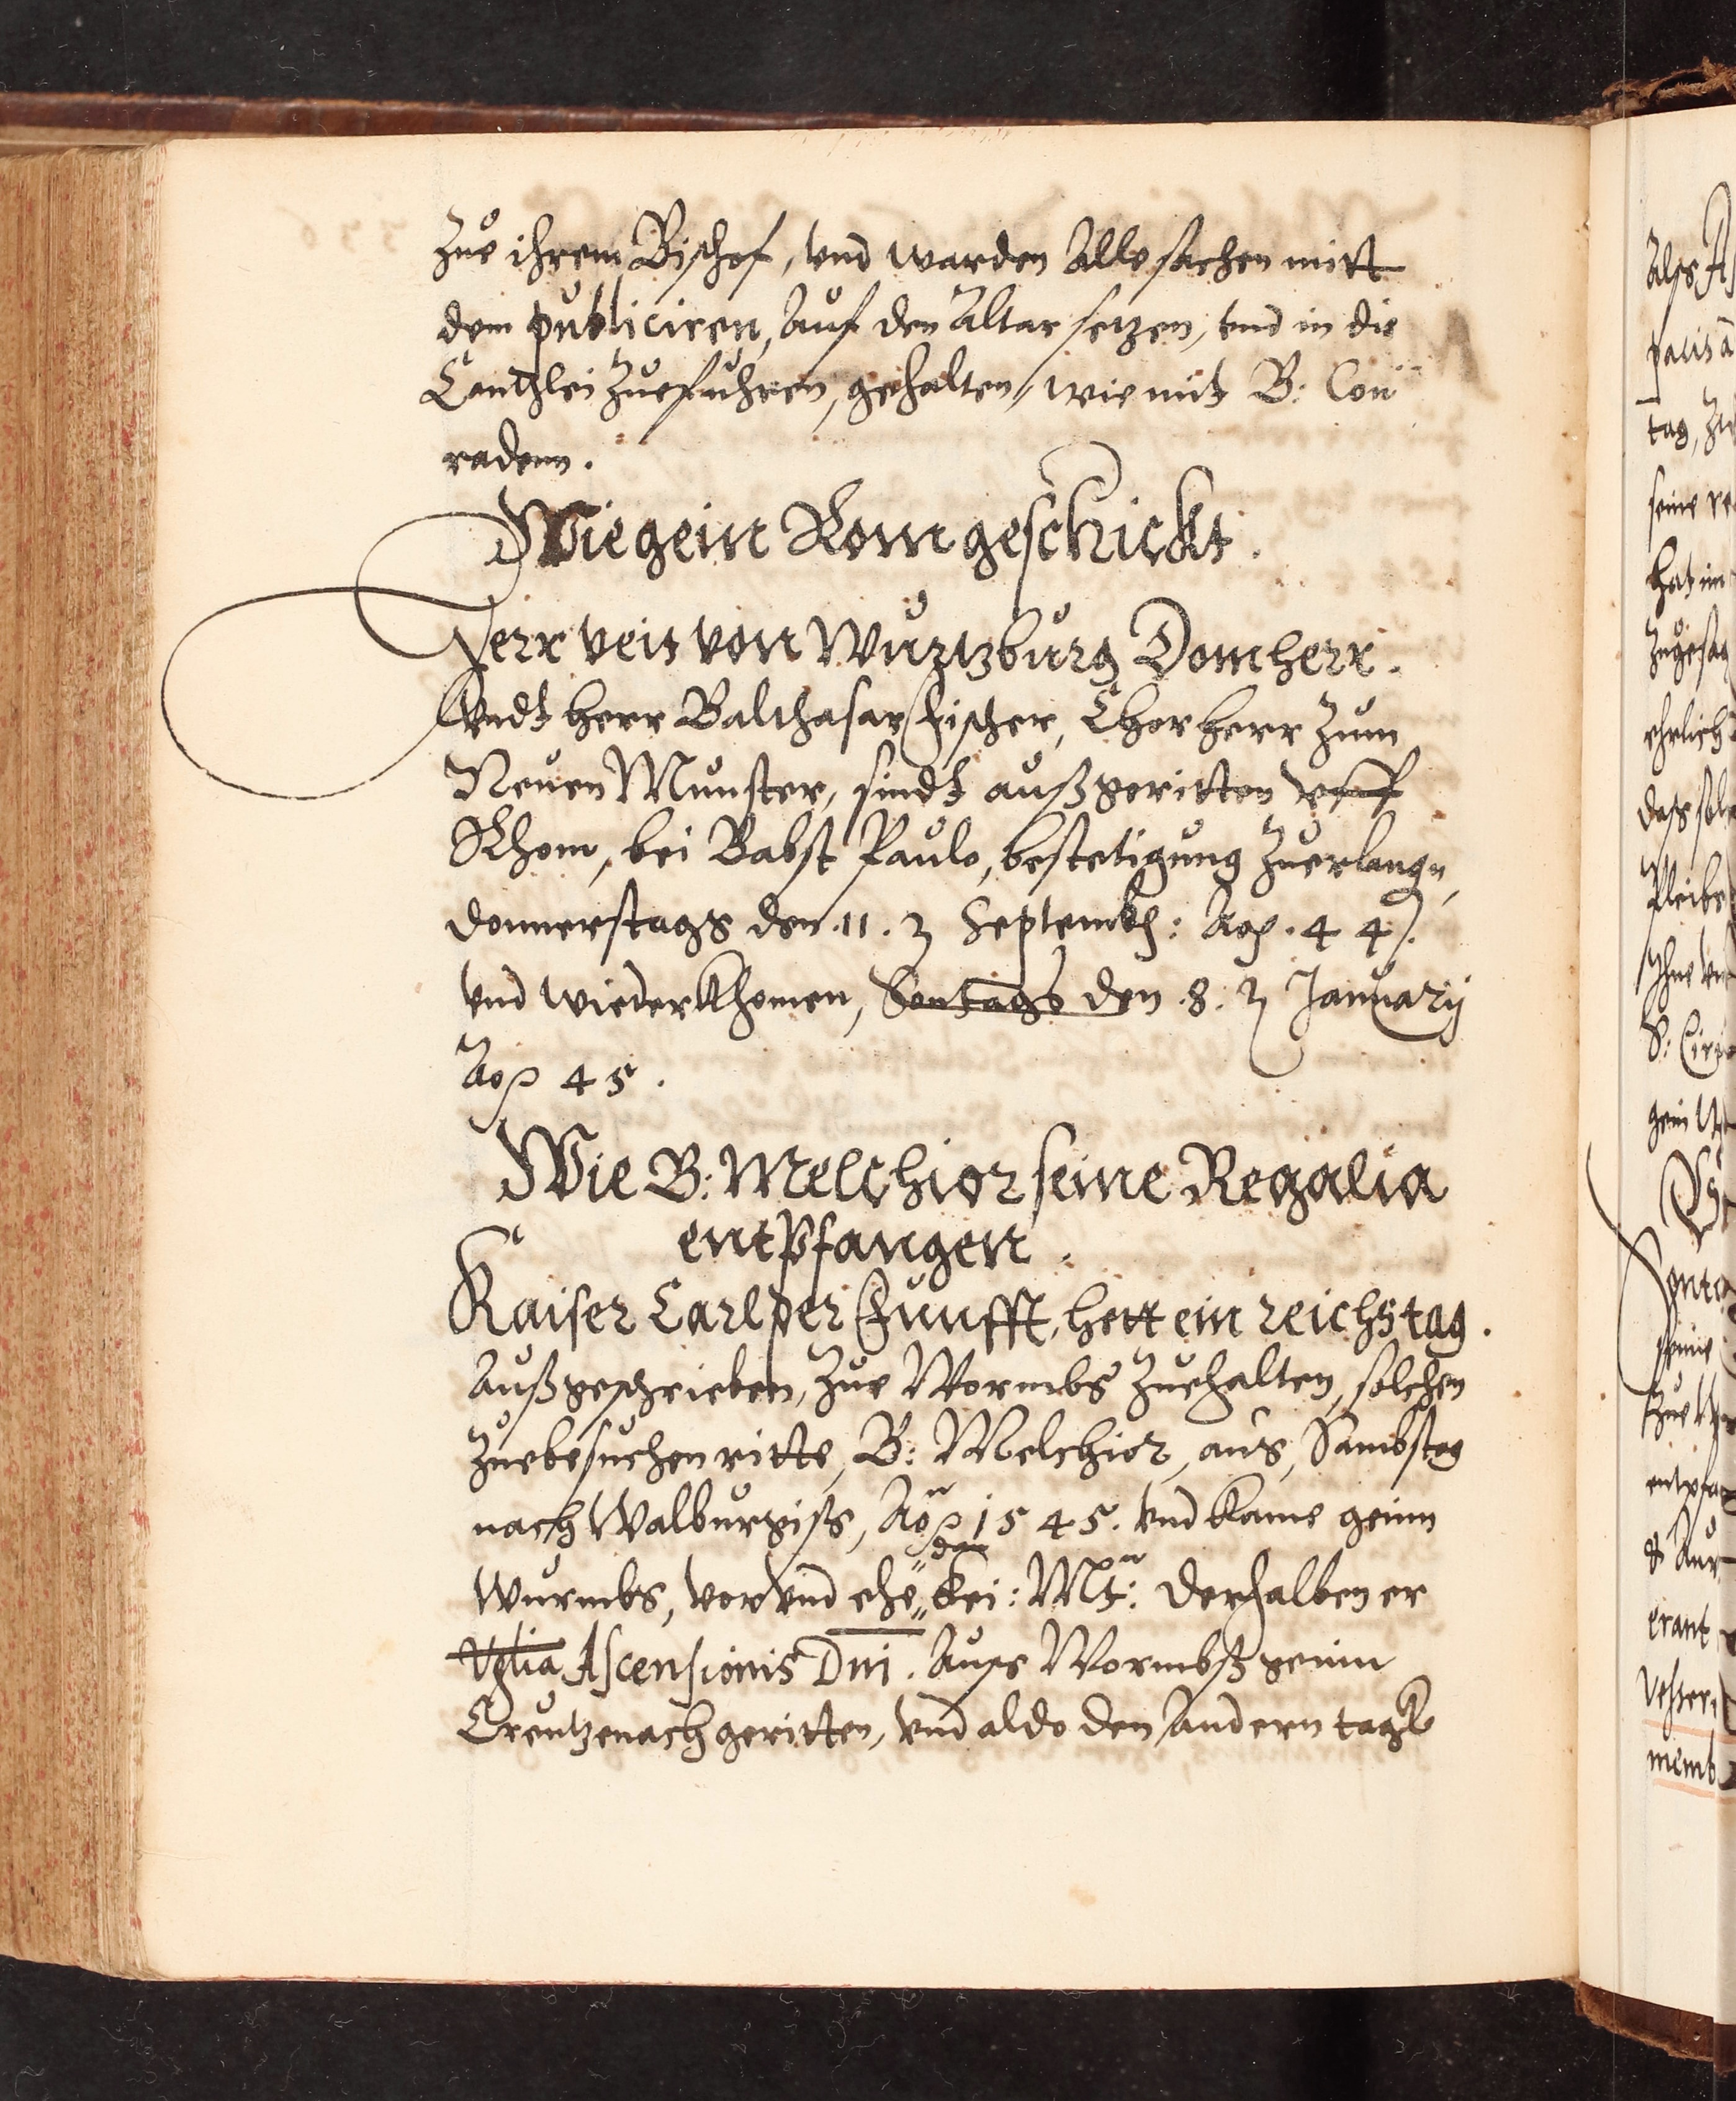 Zue ihrem Bischof, vnd warden Alle sachen mitt
dem publiciren, Auf den Altar setzen, vnd in die
Cantzlei Zuefuhren, gehalten, wie mit B: Con
radenn.
Wie gein Rom geschickt.
Herr Veit von Wurtzburg Domherr.
Vndt herr Balthasar Fischer, Chorherr Zum
Neuen Munster, sindt außgeritten vff
Rhom, bei Babst Paulo, bestetigung Zuerlangn,
donnerstags den .11. Septemb: Ao. 44.
vnd wiederkhomen, Sontags den .8. January
Ao 45.
Wie B: Melchior seine Regalia
entpfangen.
Kaiser Carl der Funfft, hett ein reichstag.
Außgeschrieben, Zue Wormbs Zuehalten, solchen
Zuebesuchen ritte, B: Melchior, aus, Sambstag
nach Walburgiss, Ao 1545. vnd kame geinn
dan
Wurmbs, vor vnd ehe Kei: Mt: derhalben er
Vglia Ascensionis Dni. Auss Wormbß geinn
Creutzenach geritten, vnd aldo den Andern tag
Alss
pacis
tag,
seine
hat im
Zugesag
ehrlich
dass
Pleibe
Ihne
S:
gein
seine
Zue
entpfa
erant
memb